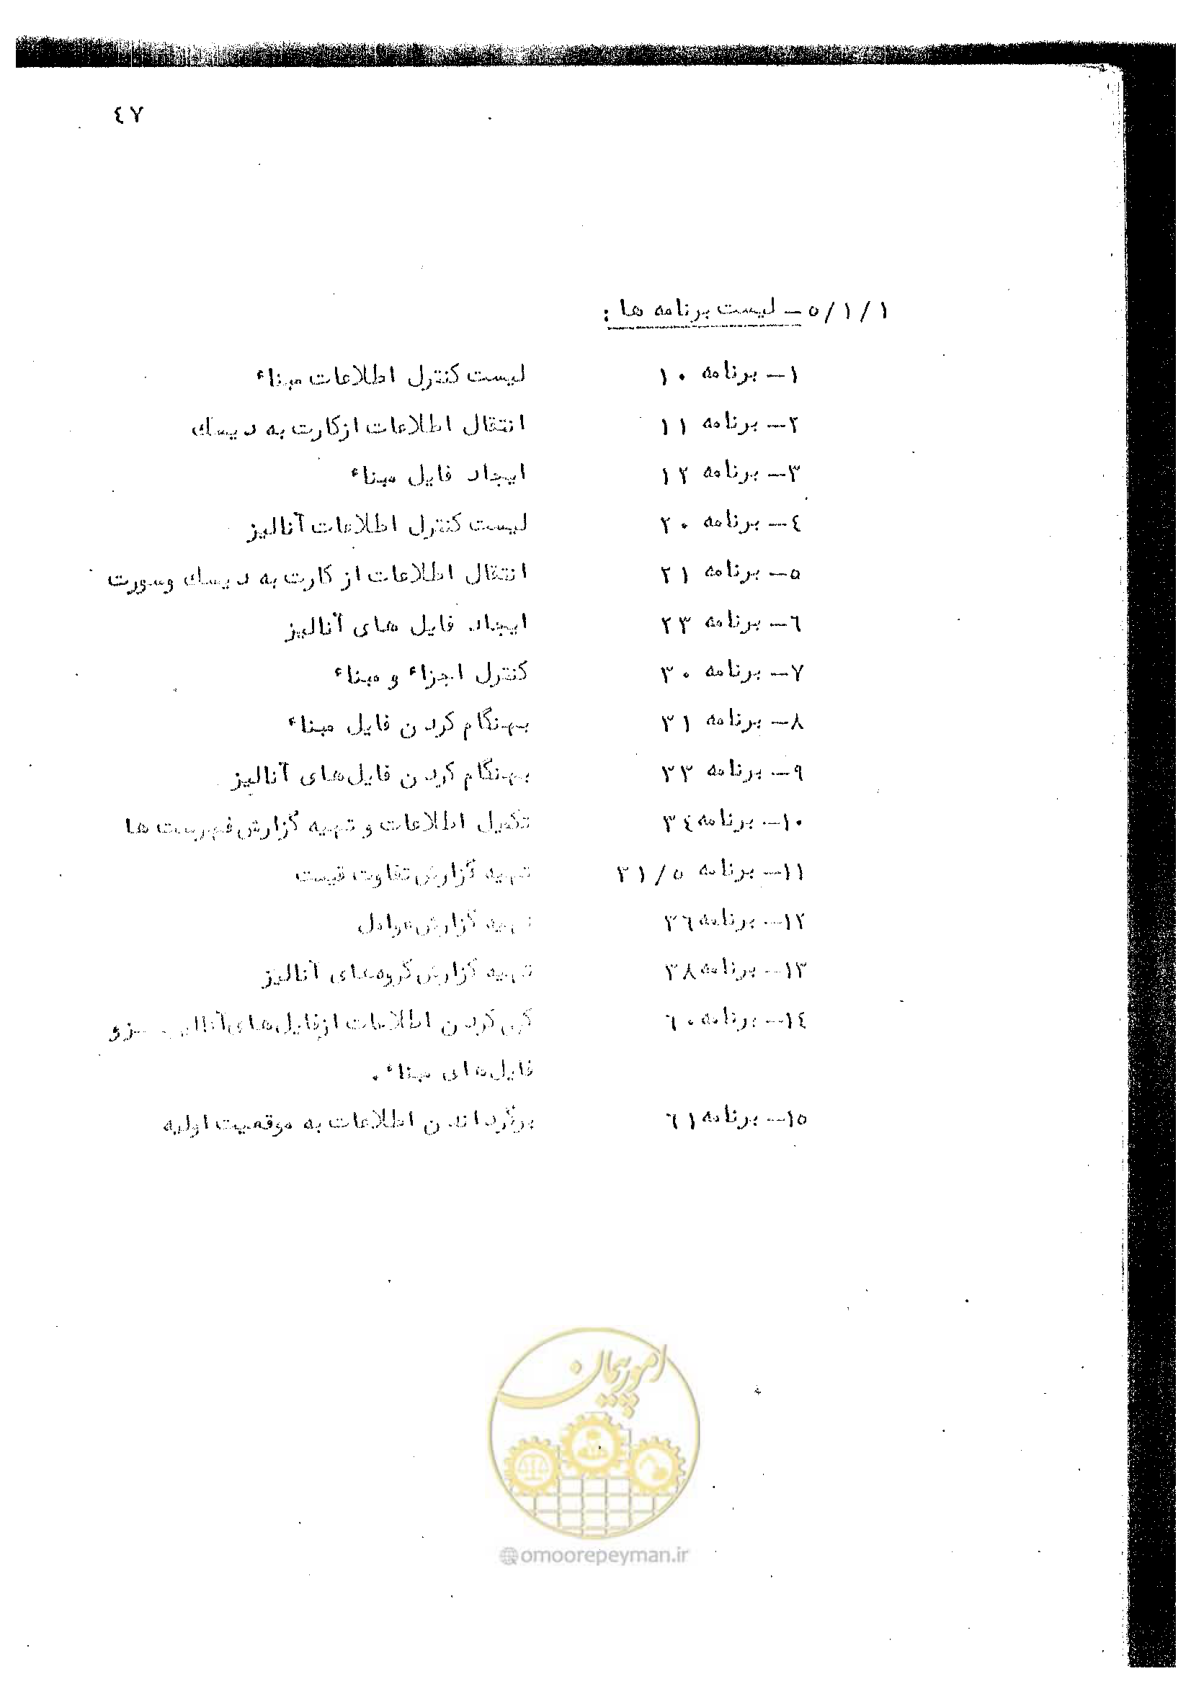 ٤٧
٥/١/١ – لیست برنامه ها :
١– برنامه ١٠ لیست کنترل اطلاعات مبناء
٢– برنامه ١١ انتقال اطلاعات ازکارت به دیسك
٣– برنامه ١٢ ایجاد فایل مبناء
٤– برنامه ٢٠ لیست کنترل اطلاعات آنالیز
٥– برنامه ٢١ انتقال اطلاعات از کارت به دیسك وسورت
٦– برنامه ٢٣ ایجاد فایل های آنالیز
٧– برنامه ٣٠ کنترل اجزاء و مبناء
٨– برنامه ٣١ بهنگام کردن فایل مبناء
٩– برنامه ٣٣ بهنگام کردن فایل‌های آنالیز
١٠– برنامه ٣٤ تکمیل اطلاعات و تهیه گزارش فهرست ها
١١– برنامه ٣١/٥ تهیه گزارش تفاوت قیمت
١٢– برنامه ٣٦ تهیه گزارش عوامل
١٣– برنامه ٣٨ تهیه گزارش گروههای آنالیز
١٤– برنامه ٦٠ کپی کردن اطلاعات ازفایل‌های آنالیز و
فایل‌های مبناء .
١٥– برنامه ٦١ برگرداندن اطلاعات به موقعیت اولیه
امور پیمان
@omoorepeyman.ir